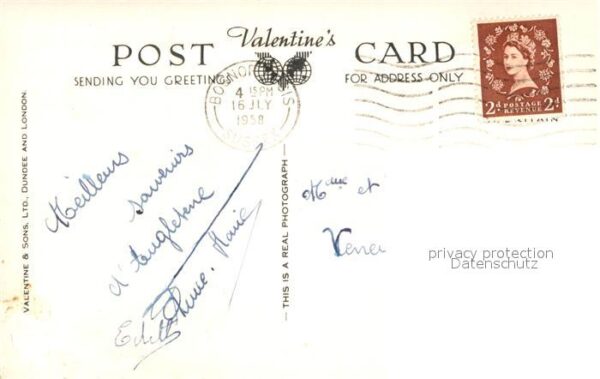 POST Valentine's CARD
SENDING YOU GREETINGS FOR ADDRESS ONLY
4 15 PM
16 JLY
1958
SUSSEX
2d POSTAGE REVENUE 2d
VALENTINE & SONS, LTD., DUNDEE AND LONDON.
Meilleurs
souvenirs
d'Angleterre
Anne. Marie
Edith
— THIS IS A REAL PHOTOGRAPH —
Mme et
privacy protection
Datenschutz